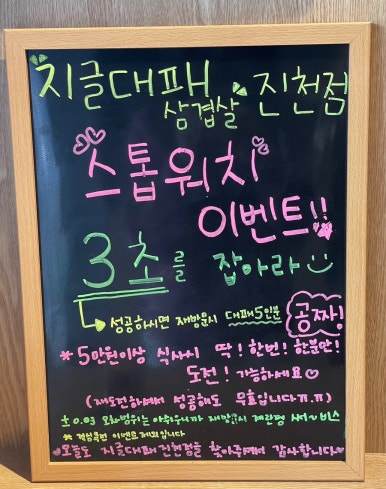 지글대패
삼겹살 진천점
스톱워치
이벤트!!
3초를 잡아라
성공하시면 재방문시 대패5인분 공짜!
* 5만원이상 식사시 딱! 한번! 한분만!
도전! 가능하세요♡
(재도전하셔서 성공해도 무효입니다ㅠ.ㅠ)
± 0.03 오차범위는 아쉬우니까 재방문시 계란찜 써~비스
* 점심특선 이벤트제외입니다
♡오늘도 지글대패 진천점을 찾아주셔서 감사합니다♡